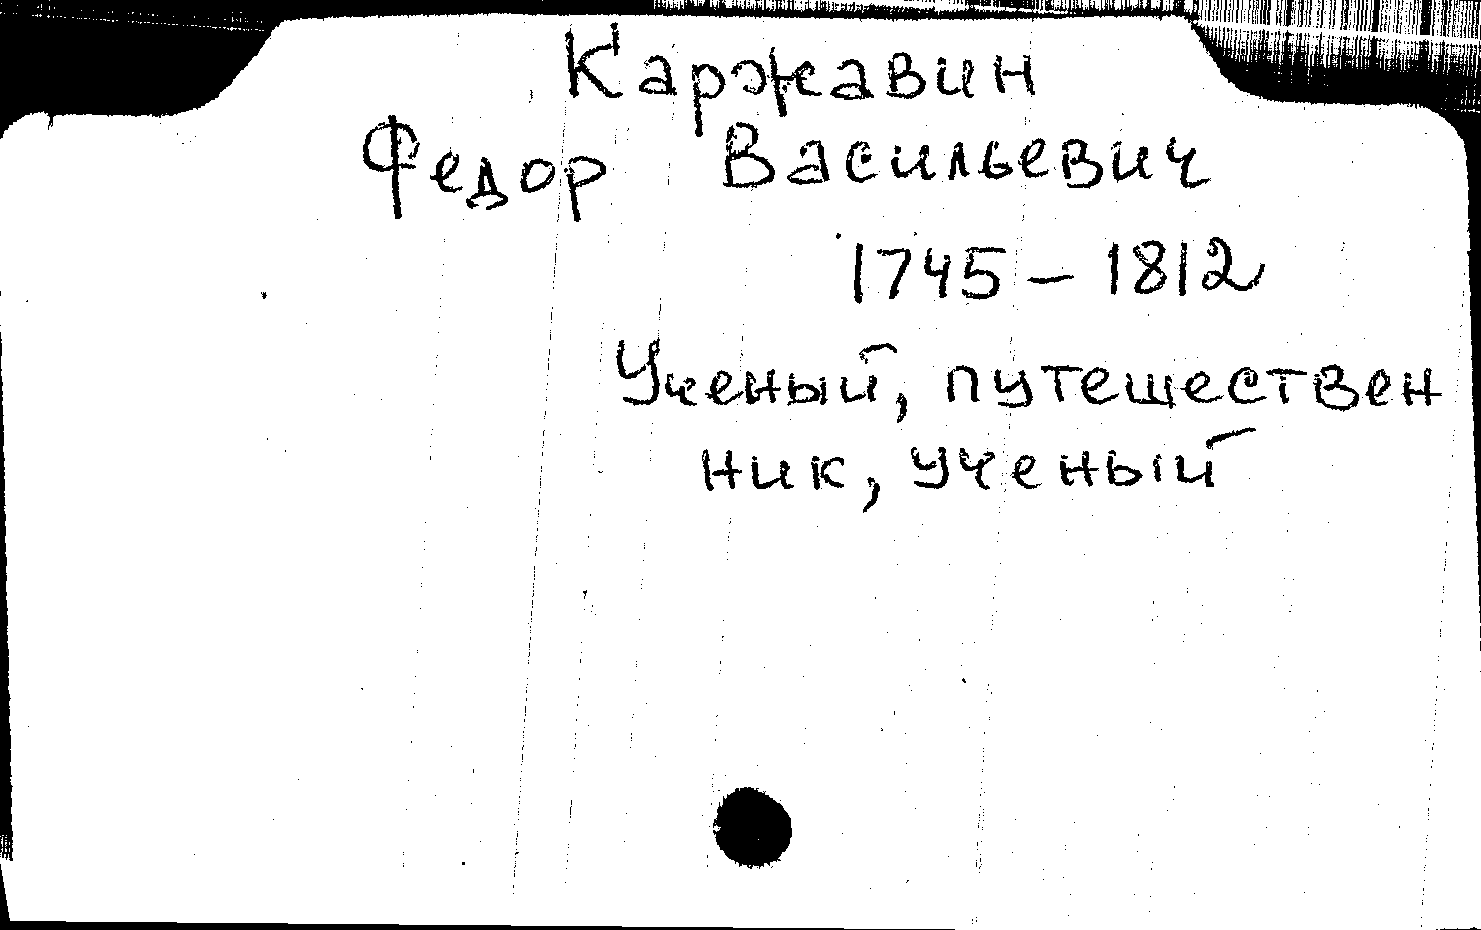 Каржавин
Федор Васильевич
1745 – 1812
Ученый, путешествен
ник, ученый